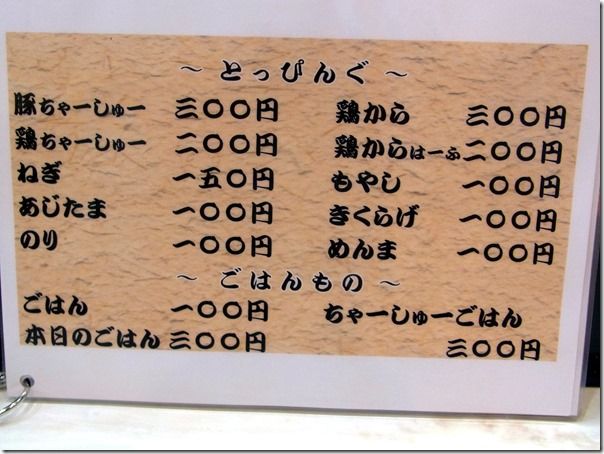 ～ とっぴんぐ ～
豚ちゃーしゅー 三〇〇円 鶏から 三〇〇円
鶏ちゃーしゅー 二〇〇円 鶏からはーふ二〇〇円
ねぎ 一五〇円 もやし 一〇〇円
あじたま 一〇〇円 きくらげ 一〇〇円
のり 一〇〇円 めんま 一〇〇円
～ ごはんもの ～
ごはん 一〇〇円 ちゃーしゅーごはん
本日のごはん 三〇〇円 三〇〇円